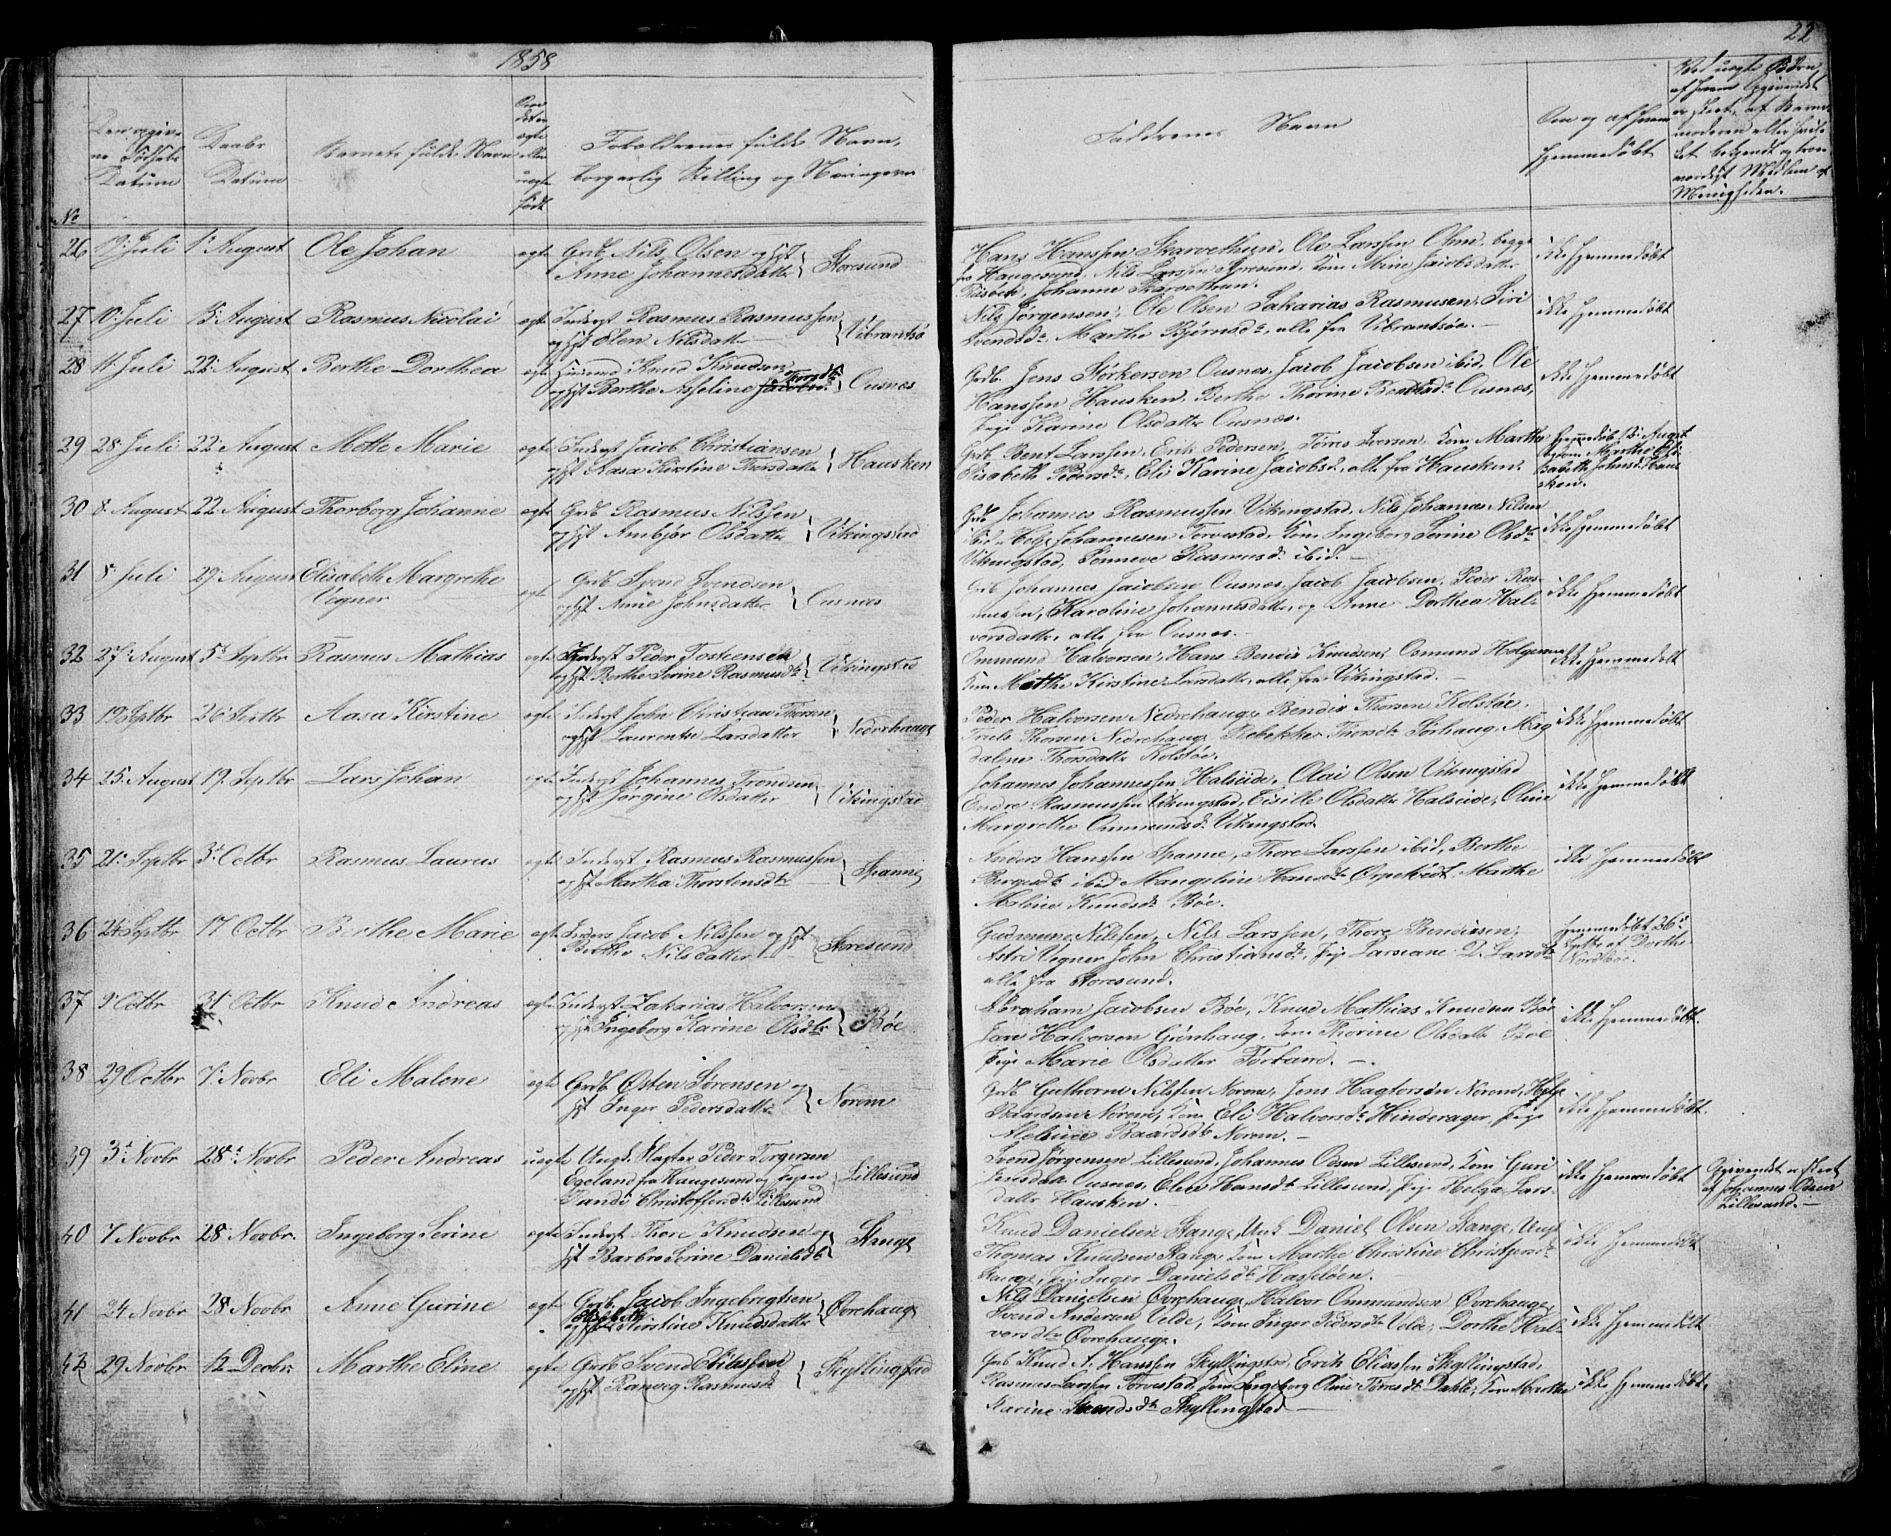 1858
22
No
Datum
Daabs
Datum
Barnets fulde Navn
Om
ægte
eller
uægte
født
Forældrenes fulde Navn,
borgerlig Stilling og
Faddrenes Navn
Om og af hvem
hjemmedøbt
26 1ste August Ole Johan ægte Grdb. Nils Olsen og Hst
Anne Johannesdatter Storesund
Hans Hanssen Skarvethun, Ole Larssen Olm, begge
fra Haugesund, Nils Larsen Storesund, Kone Mine Jacobsdatter
Johanne Skarvethun.
ikke hjemmedøbt
27 10 Juli 15 August Rasmus Nicolai ægte Inderst Rasmus Rasmussen
og Hst Elen Nilsdatter Vibrantsø
Nils Jørgensen, Ole Olsen, Sakarias Rasmusen, Siri
Svendsdtr, Marthe Bjørnsdtr, alle fra Vibrantsøe.
ikke hjemmedøbt
28 11 Juli 22 August Berthe Dorthea ægte Huusmd Knud Knudsen
og Hst Berthe Asseline Thorsdtr Ousnes
Grdb. Jens Størkersen Ousnes, Jacob Jacobsen ibid, Ole
Hanssen Hausken, Berthe Thorine Ousnes,
Pige Karine Olsdatter Ousnes.
ikke hjemmedøbt
29 28 Juli 22 August Mette Marie ægte Inderst Jacob Christiansen
og Hst Aasa Kirstine Thorsdatter Hausken
Grdb Bent Larssen, Erik Pedersen, Tørres Iversen, Kone Marthe
Elisabeth Pedersdtr, Eli Karine Jacobsd., alle fra Hausken.
hjemmedøbt 12 August
af Kone Marthe Eli-
sabeth Johnsd. Haus-
ken.
30 8 August 22 August Thorborg Johanne ægte Grdb Rasmus Nilssen
og Hst Anbjør Olsdatter Vikingstad
Grdb Johannes Rasmussen Vikingstad, Nils Johannes Nilsen
ibid, Helge Johannesen Torvestad, Kone Ingeborg Serine Olsdtr
Vikingstad, Sønneve Rasmusd. ibid.
ikke hjemmedøbt
31 8 Juli 29 August Elisabeth Margrethe
Vegner ægte Grdb Svend Svendsen
og Hst Anne Johnsdatter Ousnes
Grdb Johannes Jacobsen Ousnes, Jacob Jacobsen, Peder Ras-
mussen, Karoline Johannesdatter, og Anne Dorthea Hal-
vorsdatter, alle fra Ousnes.
ikke hjemmedøbt
32 27 August 5te Septbr Rasmus Mathias ægte Inderst Peder Tosteensen
og Hst Berthe Serine Rasmusdtr Vikingstad
Ommund Halvorsen, Hans Bendix Knudsen, Osmund Helgesen
Kone Mette Kirstine Larsdatter, alle fra Vikingstad.
ikke hjemmedøbt
33 19 Septbr 26 Septbr Aasa Kirstine ægte Inderst John Christian Thorsen
og Hst Laurentse Larsdatter Nedrehauge
Peder Halvorsen Nedrehauge, Bendix Thorsen Kolstøe,
Thorsen Nedrehauge, Rebekke Thorsdtr Sørhaug, Mag-
dalene Thorsdatter Kolstøe.
ikke hjemmedøbt
34 25 August 19 Septbr Lars Johan ægte Inderst Johannes Trondsen
og Hst Jørgine Olsdatter Vikingstad
Johannes Johannessen Halseide, Olai Olsen Vikingstad
Endre Rasmussen Vikingstad, Olsdatter Halseide, Oline
Margrethe Ommundsd. Vikingstad.
ikke hjemmedøbt
35 21 Septbr 3die Octbr Rasmus Laurus ægte Inderst Rasmus Rasmussen
og Hst Martha Thorstensdtr Spanne
Anders Hanssen Spanne, Thore Larssen ibid, Berthe
Bergesdtr ibid, Mangeline Hansdtr Marthe
Malene Knudsdtr Bøe.
ikke hjemmedøbt
36 24 Septbr 17 Octbr Berthe Marie ægte Inderst Jacob Nilssen og Hst
Berthe Nilsdatter Storesund
Gudmunn Nilssen, Nils Larssen, Thore Bendixsen,
Astri Vegner John Christiansdtr, Pige Larseane D. Larsdtr
alle fra Storesund.
hjemmedøbt 26
Septbr af Dorthe
Nordbøe.
37 9 Octbr 31 Octbr Knud Andreas ægte Inderst Zakarias Halvorsen
og Hst Ingeborg Karine Olsdtr Bøe
Abraham Jacobsen Bøe, Knud Mathias Knudsen Bøe
Jan Halvorsen Grønhaug, Kone Thorine Olsdatter Bøe
Pige Marie Olsdatter Førland.
ikke hjemmedøbt.
38 29 Octbr 7 Novbr Eli Malene ægte Grdb Østen Sørensen og
Hst Inger Pedersdatter Norem
Grdb Guthorm Nilssen Norem, Jens Hagtorsøn Norem, Helge
Baardsen Norem, Kone Eli Halvorsdtr Hinderager, Pige
Baardsdtr Norem.
ikke hjemmedøbt.
39 3die Novbr 28de Novbr Peder Andreas uægte Ungk. Slagter Peder Torgersen
Egeland fra Haugesund og Pigen
Christoffersdtr Lillesund Lillesund
Svend Jørgensen Lillesund, Johannes Odsen Lillesund, Kone Guri
Jensdatter Ousnes, Elen Hansdtr Lillesund, Pige Helga Lars-
datter Hausken.
ikke hjemmedøbt
Opgivendet er skeet
af Johannes Odsen
Lillesund.
40 7 Novbr 28 Novbr. Ingeborg Serine ægte Inderst Thore Knudsen og
Hst Barbro Serine Danielsdtr Stange
Knud Danielsen Stange, Ungk Daniel Olsen Stange, Ungk
Thomas Knudsen Stange, Kone Marthe Christine Christensdtr
Stange, Pige Inger Danielsdtr Hasseløen.
ikke hjemmedøbt
41 24 Novbr 28 Novbr Anne Gurine ægte Grdb. Jacob Ingebrigtsen
og Hst Kirstine Knudsdatter Øvrehauge
Nils Danielsen Øvrehauge, Halvor Ommundsen Øvrehauge,
Svend Andersen Velde, Kone Inger Pedersdtr Velde, Dorthe Hal-
vorsdtr Øvrehauge.
ikke hjemmedøbt
42 29 Novbr 12 Decbr Marthe Eline ægte Grdb Svend Eliassen
og Hst Ranveg Rasmusd. Skyllingstad
Grdb Knud A. Hanssen Skyllingstad, Erik Eliassen Skyllingstad,
Rasmus Larssen Torvestad, Kone Ingeborg Oline Tørresdtr Dahle, Kone Marthe
Karine Svendsdtr Skyllingstad
ikke hjemmedøbt.